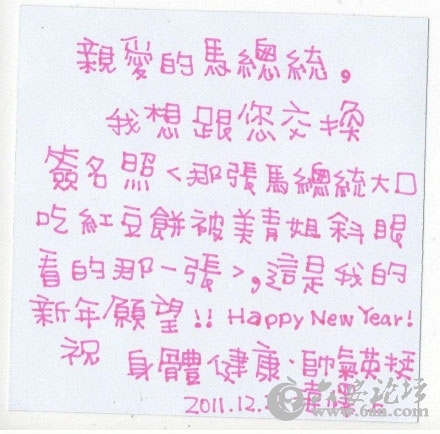 親愛的馬總統，
我想跟您交換
簽名照<那張馬總統大口
吃紅豆餅被美青姐斜眼
看的那一張>，這是我的
新年願望!! Happy New Year!
祝 身體健康·帥氣英挺
2011.12.
六安论坛
www.6an.com